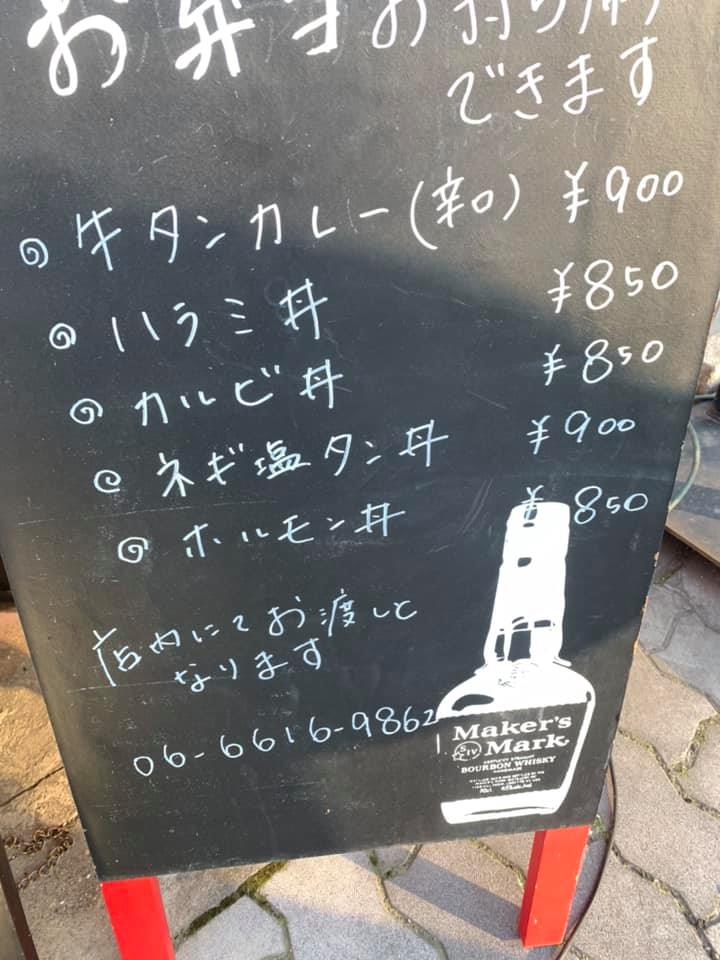 お弁当お持ち帰り
できます
牛タンカレー(辛口) ¥900
ハラミ丼 ¥850
カルビ丼 ¥850
ネギ塩タン丼 ¥900
ホルモン丼 ¥850
店内にてお渡しと
なります
06-6616-9862
Maker's
SIV Mark
BOURBON WHISKY